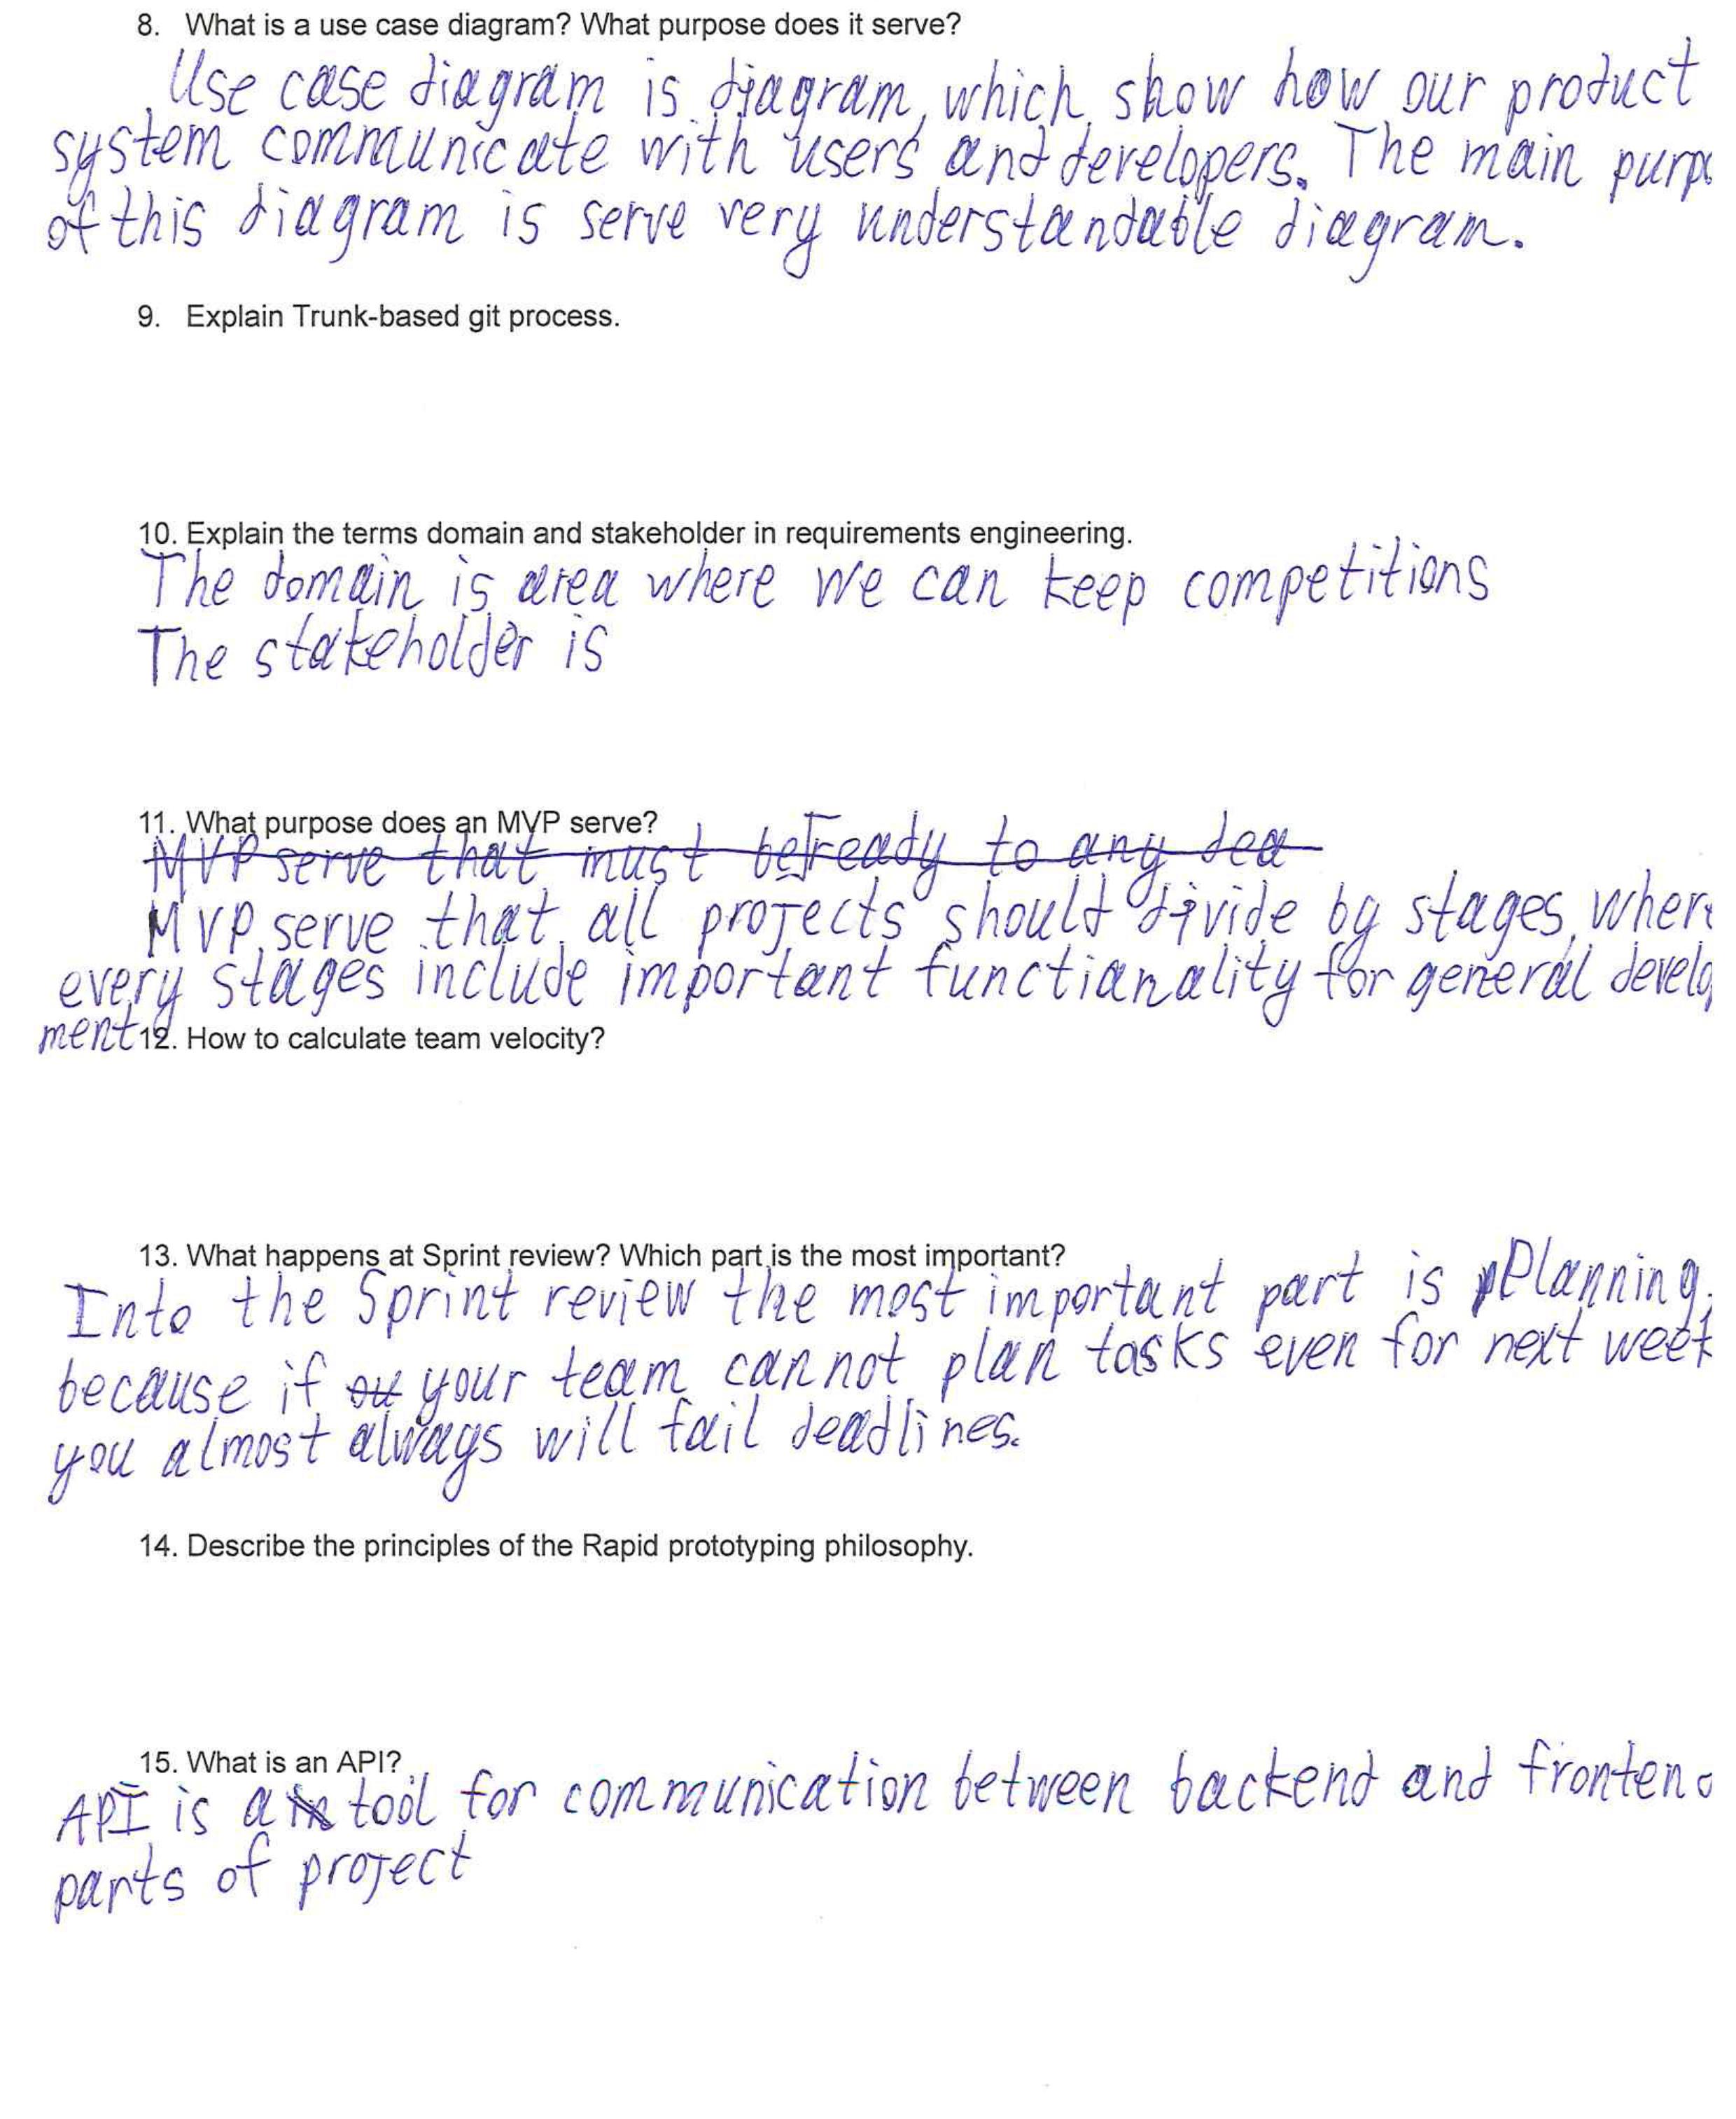 8. What is a use case diagram? What purpose does it serve?
Use case diagram is diagram, which show how our product
system communicate with users and developers. The main purpo
of this diagram is serve very understandable diagram.
9. Explain Trunk-based git process.
10. Explain the terms domain and stakeholder in requirements engineering.
The domain is area where we can keep competitions
The stakeholder is
11. What purpose does an MVP serve?
MVP serve that must be ready to any dea
MVP serve that all projects should divide by stages, where
every stages include important functianality for general develop
ment
12. How to calculate team velocity?
13. What happens at Sprint review? Which part is the most important?
Into the Sprint review the most important part is planning,
because if ou your team cannot plan tasks even for next week
you almost always will fail deadlines.
14. Describe the principles of the Rapid prototyping philosophy.
15. What is an API?
API is a tool for communication between backend and frontend
parts of project